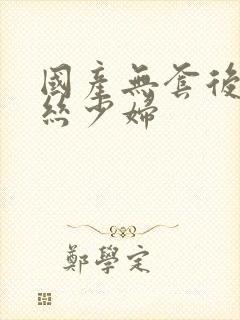 國產無套後
絲少婦
鄭學定